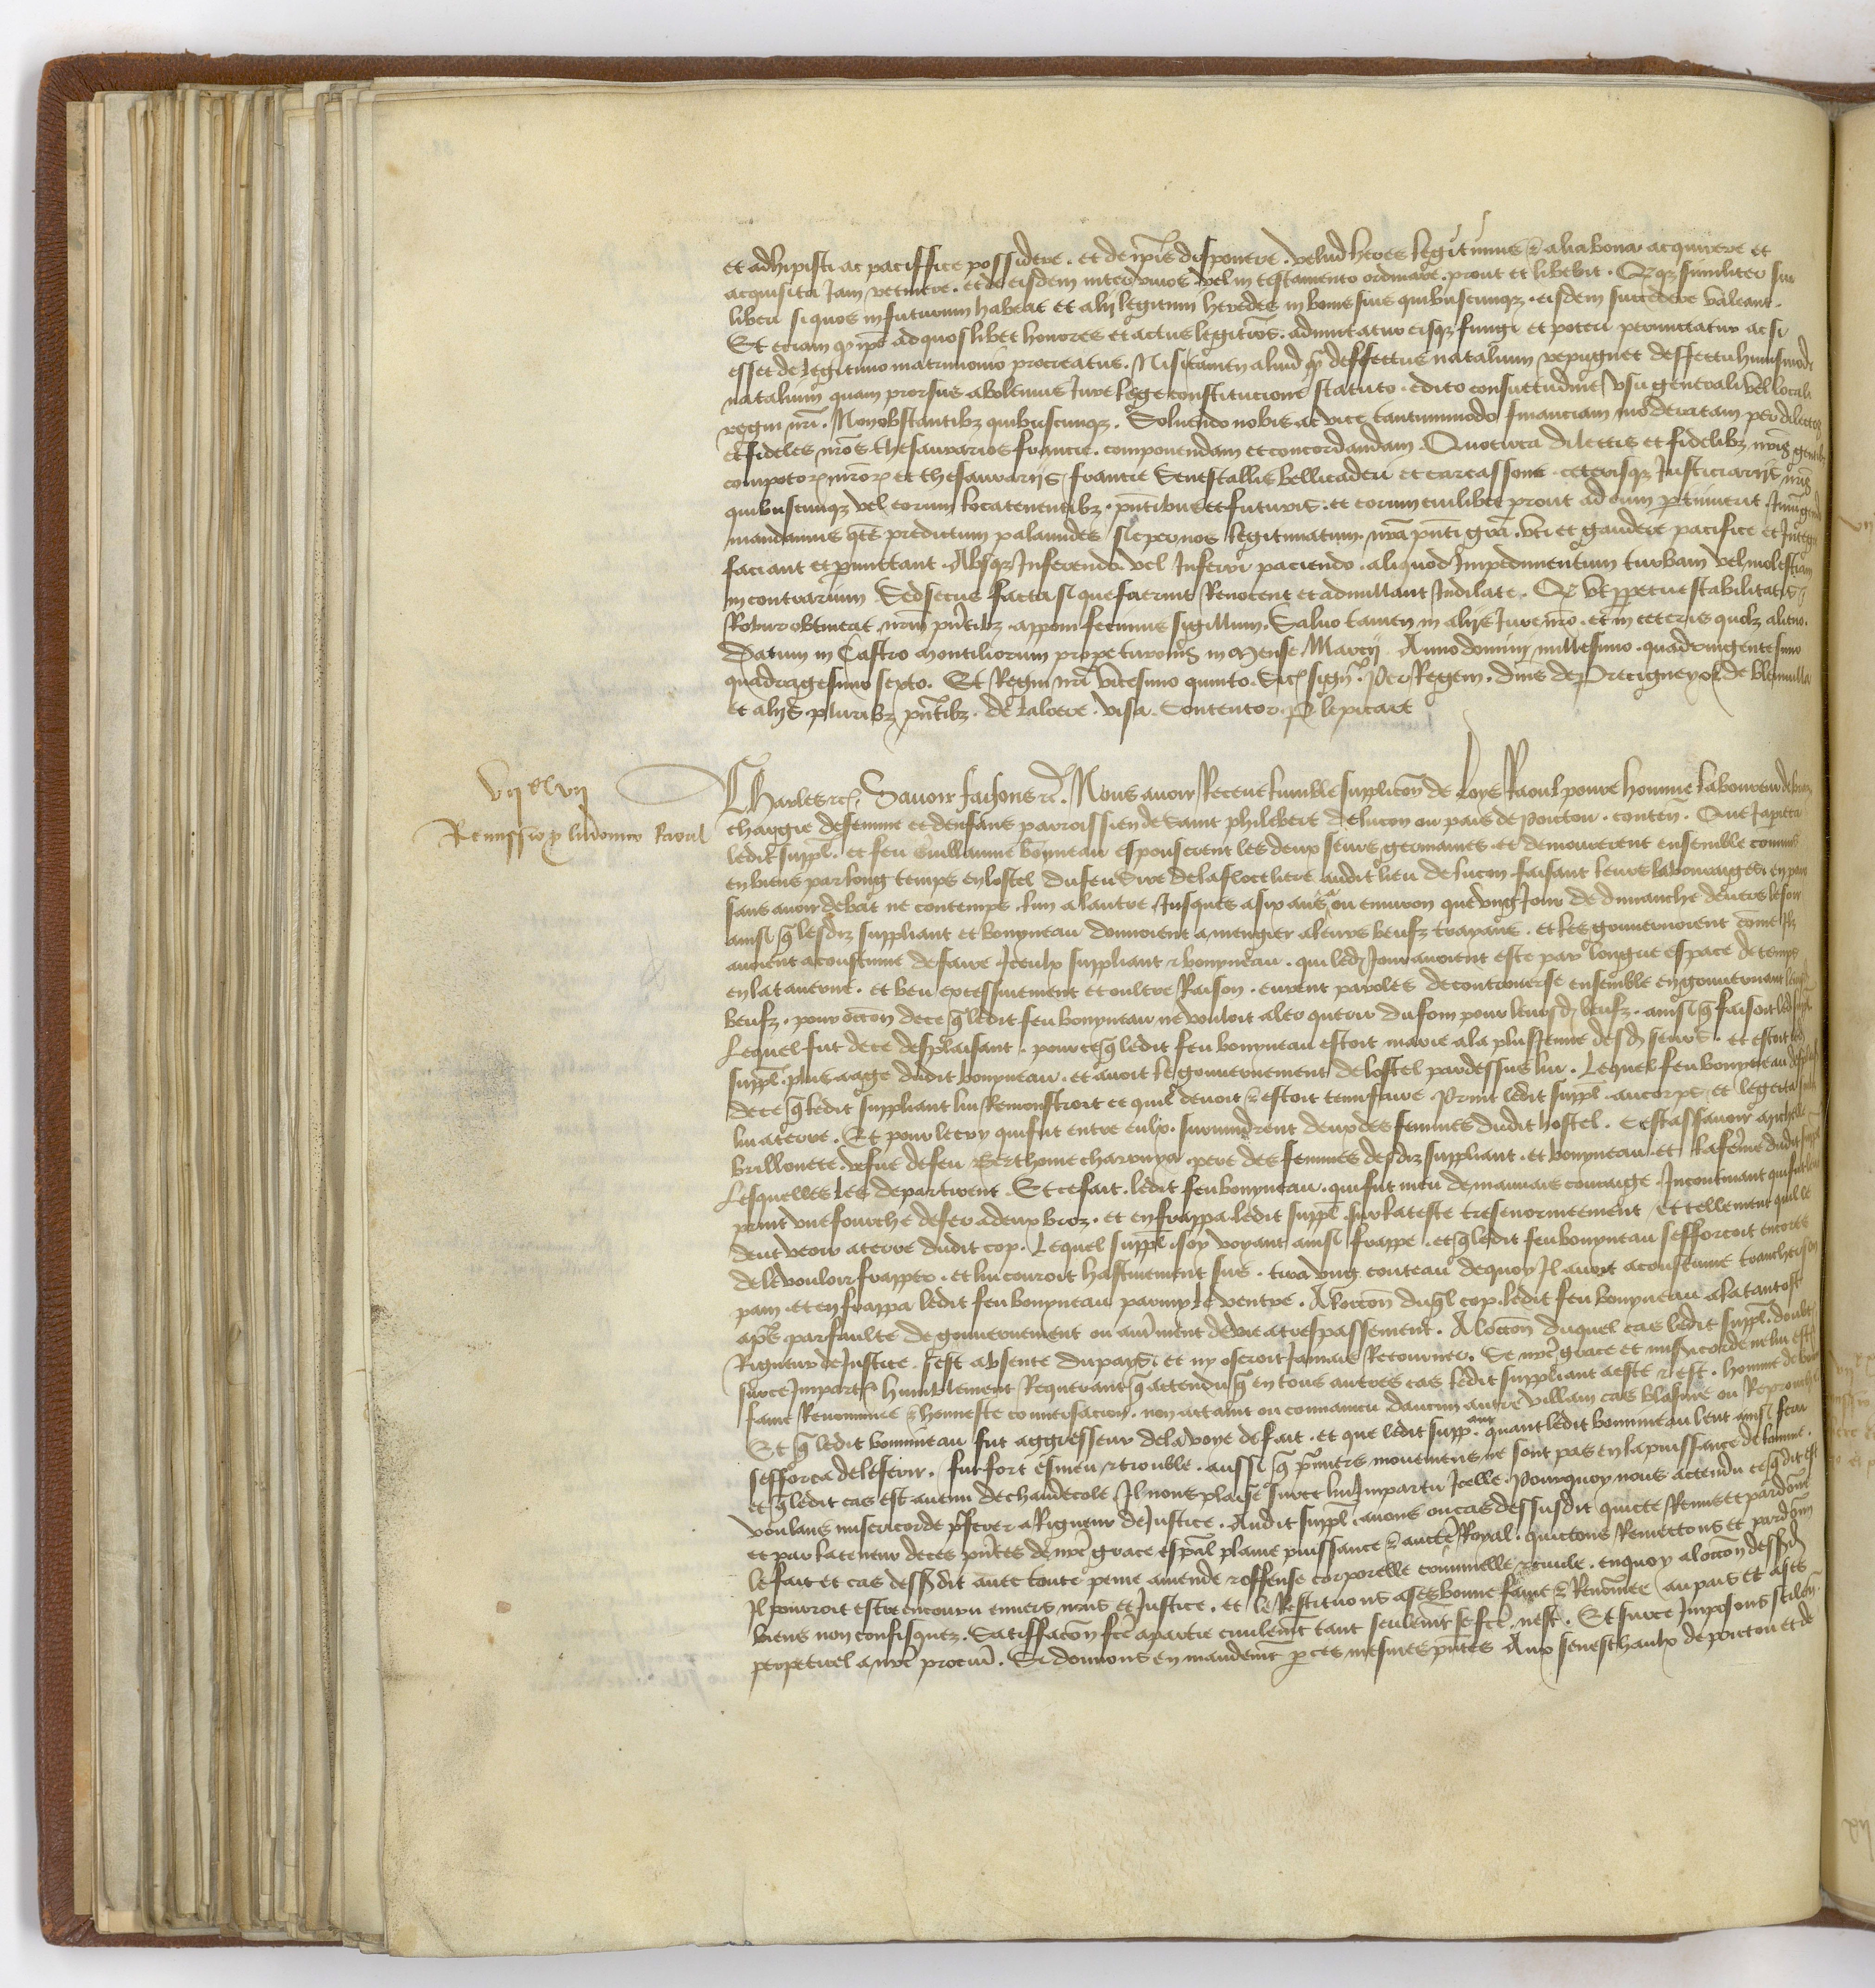 et adhipisci ac paciffice possidere . et de ip̄is disponere . velud heres legitimus & alia bona acquirere et
acquisita Jam retinere . et de eisdem inter vivos vel in testamento ordinare . prout et libebit . Et q̃ similiter sui
liberi si quos in futurum habeat et alij legitimi heredes in bonis suis quibuscumq; . eisdem succedere valeant .
Et eciam q̃ ip̄e ad quoslibet honores et actus legitimos . admittatur eisq; fungi et potiri permittatur ac si
esset de legitimo matrimonio procreatus . Nisi tamen aliud q̃ deffectus natalium repugnet deffectu huiusmodi
natalium quam prorsus abolemus Jure lege constitucione statuto . edito consuetudine usu generali vel locali
regni nr̄i . Nonobstantibz quibuscumq; . Solvendo nobis ac vice tantummodo financiam moderatam per dilectos
et fideles nr̄os thesaurarios francie . componendam et concordandam . Quocirca dilectis et fidelibz nr̄is gentibz
compotor̄ nr̄or̄ et thesaurarijs francie Senescallis bellicadri et carcassone . ceterisq; Justiciarijs nr̄is
quibuscumq; vel eorum locatenentibz . pn̄tibus et futuris . et eorum cuilibet prout ad eum pertinuerit . Jniungendo
mandamus q̃tus predictum palamides sic per nos legitimatum . nr̄a pn̄ti gr̄a . uti et gaudere pacifice et Jntegre
faciant et permittant . Absq; Jnferendo vel Jnferri paciendo . aliquod Jmpedimentum turbam vel molestiam
in contrarium Sed secus facta si que fuerint Revocent et adnullant Jndilate . Et ut perpetue stabilitatis
Robur obtineat nr̄m pn̄tibz . apponi fecimus sigillum . Salvo tamen in alijs Jure nr̄o . et in ceteris quolz alieno .
Datum in Castro montiliorum prope turonis in mense Marcij . Anno domini millesimo . quadringentesimo
quadragesimo sexto . Et Regni nr̄i vicesimo quinto . Sic sign̄ . Per Regem . dn̄is de Precigneyo & de blainvilla
et alijs pluribz pn̄tibz . de laloere . visa . Contentor . P lepicart
vij xx vij
Remissio p̱ ludovico Raoul
Charles &c. Savoir faisons &c. Nous avoir Receue lumble supplicōn de Loys Raoul povre homme laboureur de bras
chargie de femme et denfans parroissien de Saint philebert de lucon ou pais de poictou . conten̄ . Que Japieca
ledit suppl̄ . et feu Guillaume bonyneau espouserent les deux seurs germaines . et demourerent ensemble communs
en biens par long temps en lostel du feu Sire de laflocelliere audit lieu de lucon . faisant leurs labouraiges en paix
sans avoir debat ne contemps lun a lautre . Jusques a six ans a ou environ que ung Jour de dimanche devers le soir
ainsi q̃ lesdiz suppliant et bonyneau donnoient a mengier a leurs beufz trayans . et les gouvernoient cōme Jlz
avoient acoustume de faire Jceulx suppliant & bonyneau . qui led̄ Jour avoient este par longue espace de temps
en la taverne . et beu excessivement et oultre Raison . eurent paroles de controverse ensemble en gouvernant leursd̄
beufz . pour occōn de ce q̃ ledit feu bonyneau ne vouloit aler querir du foin pour leursd̄ beufz . ainsi q̃ faisoit led̄ suppl̄
Lequel fut de ce desplaisant . pour ce q̃ ledit feu bonyneau estoit marie a la plus Jeune desd̄ seurs . et estoit led̄
suppl̄ . plus aage dudit bonyneau . et avoit le gouvernement de lostel par dessus lui . Lequel feu bonyneau desplaisant
de ce q̃ ledit suppliant lui Remonstroit ce quil devoit & estoit tenu faire . Print ledit suppl̄ . au corps et le gecta soubz
lui a terre . Et pour le cry qui fut entre eulx . survindrent deux des femmes dudit hostel . Cestassavoir anchelle
brillouete . vefue de feu Berthome charruya . pere des femmes desdiz suppliant . et bonyneau . et la fem̄e dudit suppl̄
Lesquelles les departirent . Et ce fait . ledit feu bonyneau . qui fut meu de mauvais couraige . Jncontinant qui fut leve
print une fourche de fer a deux broz . et en frappa ledit suppl̄ . sur la teste tresenormement Et tellement quil le
deut ruer a terre dudit cop . Lequel suppl̄ . soy voyant ainsi frappe . et q̃ ledit feu bonyneau sefforcoit encores
de le vouloir frapper . et lui couroit hastivement sus . tira ung couteau de quoy Jl avoit acoustume trancher son
pain . et en frappa ledit feu bonyneau parmy le ventre . A loccōn duq̃l cop . ledit feu bonyneau ala tantost
apr̄s par faulte de gouvernement ou autrement de vie a trespassement . A loccōn duquel cas ledit suppl̄ . doubt̄
Rigueur de Justice . sest absente du pays . et ny oseroit Jamais Retourner . Se nr̄e grace et misericorde ne lui est
sur ce Jmpart̄ . humblement Requerant q̃ attendu q̃ en tous autres cas ledit suppliant a este & est . homme de bonne
fame Renommee & honneste conversacion . non attaint ou convaincu daucun autre villain cas blasme ou Reprouche
Et q̃ ledit bonineau fut aggresseur de la voye de fait . et que ledit supp.ant quant ledit bonineau leut ainsi feru
sefforca de le ferir . fut fort esmeu & trouble . aussi q̃ premiers mouvemens ne sont pas en la puissance de lomme .
et q̃ ledit cas est avenu de chaudecole . Jl nous plaise sur ce lui Jmpartir Jcelle . Pourquoy nous attendu ce q̃ dit est
voulans misericorde pr̄ferer a Rigueur de Justice . Audit suppl̄ . avons ou cas dessusdit quicte Remis et pardonne
et par la teneur de ces pn̄tes de nr̄e grace esp̄al plaine puissance & aucte Royal . quictons Remettons et pardonn̄
le fait et cas dessusdit avec toute peine amende & offense corporelle criminelle & civile . en quoy a loccōn dessusd̄
Jl pourroit estre encouru envers nous et Justice . et le Restituons a ses bonne fame & Renōmee au pais et a ses
biens non confisquez . Satisfacōn fcē a partie civilemt tant seulemt se fcē nest . Et sur ce Jmposons silen̄
perpetuel a nr̄e procur̄ . Si donnons en mandemt p̱ ces mesmes pn̄tes Aux seneschaulx de poictou et de